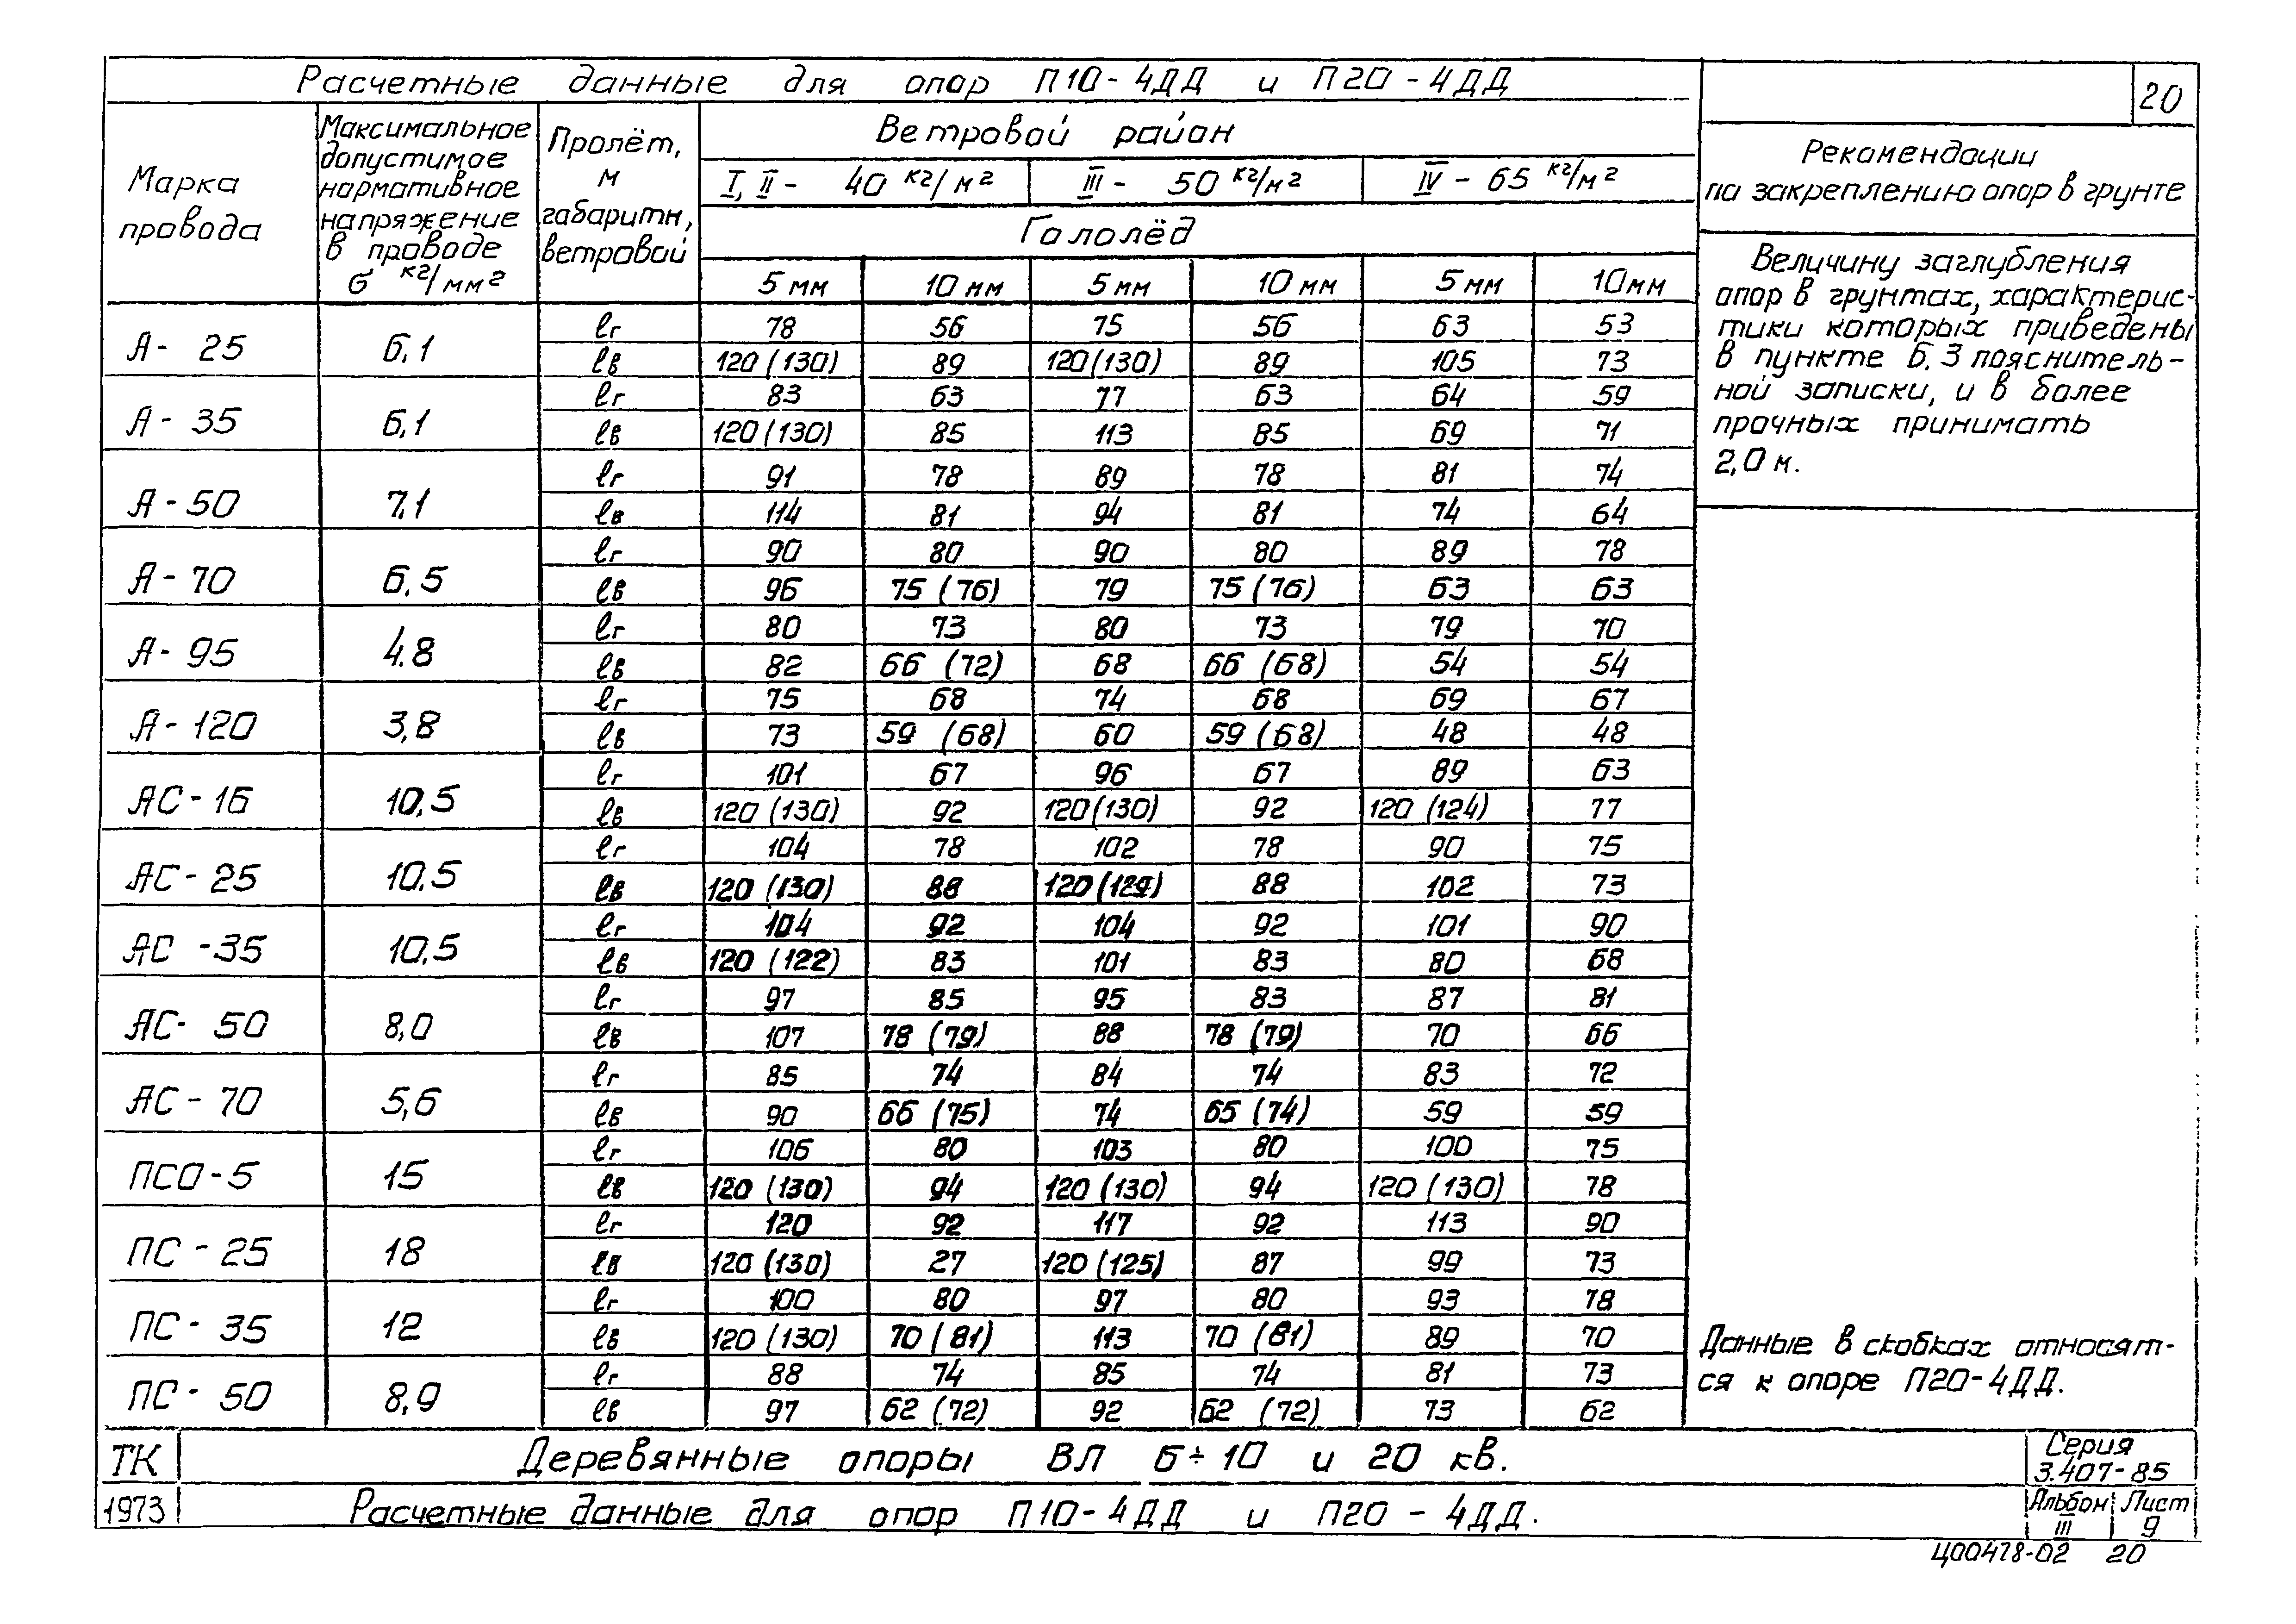 Расчетные данные для опор П10-4ДД и П20-4ДД
20
Марка провода
Максимальное допустимое нормативное напряжение в проводе σ кг/мм²
Пролёт, м габаритн, ветровой
Ветровой район
I, II - 40 кг/м² III - 50 кг/м² IV - 65 кг/м²
Гололёд
5 мм 10 мм 5 мм 10 мм 5 мм 10 мм
А- 25 6,1 lг 78 56 75 56 63 53
lв 120 (130) 89 120 (130) 89 105 73
А- 35 6,1 lг 83 63 77 63 64 59
lв 120 (130) 85 113 85 69 71
А-50 7,1 lг 91 78 89 78 81 74
lв 114 81 94 81 74 64
А-70 6,5 lг 90 80 90 80 89 78
lв 96 75 (76) 79 75 (76) 63 63
А- 95 4.8 lг 80 73 80 73 79 70
lв 82 66 (72) 68 66 (68) 54 54
А-120 3,8 lг 75 68 74 68 69 67
lв 73 59 (68) 60 59 (68) 48 48
АС-16 10,5 lг 101 67 96 67 89 63
lв 120 (130) 92 120 (130) 92 120 (124) 77
АС-25 10.5 lг 104 78 102 78 90 75
lв 120 (130) 88 120 (129) 88 102 73
АС -35 10.5 lг 104 92 104 92 101 90
lв 120 (122) 83 101 83 80 68
АС- 50 8,0 lг 97 85 95 83 87 81
lв 107 78 (79) 88 78 (79) 70 66
АС-70 5,6 lг 85 74 84 74 83 72
lв 90 66 (75) 74 65 (74) 59 59
ПСО-5 15 lг 106 80 103 80 100 75
lв 120 (130) 94 120 (130) 94 120 (130) 78
ПС-25 18 lг 120 92 117 92 113 90
lв 120 (130) 27 120 (125) 87 99 73
ПС- 35 12 lг 100 80 97 80 93 78
lв 120 (130) 70 (81) 113 70 (81) 89 70
ПС- 50 8,9 lг 88 74 85 74 81 73
lв 97 62 (72) 92 62 (72) 73 62
Рекомендации
по закреплению опор в грунте
Величину заглубления
опор в грунтах, характерис-
тики которых приведены
в пункте 6.3 пояснитель-
ной записки, и в более
прочных принимать
2,0 м.
Данные в скобках относят-
ся к опоре П20-4ДД.
ТК Деревянные опоры ВЛ 6÷10 и 20 кв. Серия
3.407-85
1973 Расчетные данные для опор П10-4ДД и П20-4ДД. Альбом Лист
III 9
Ц00478-02 20